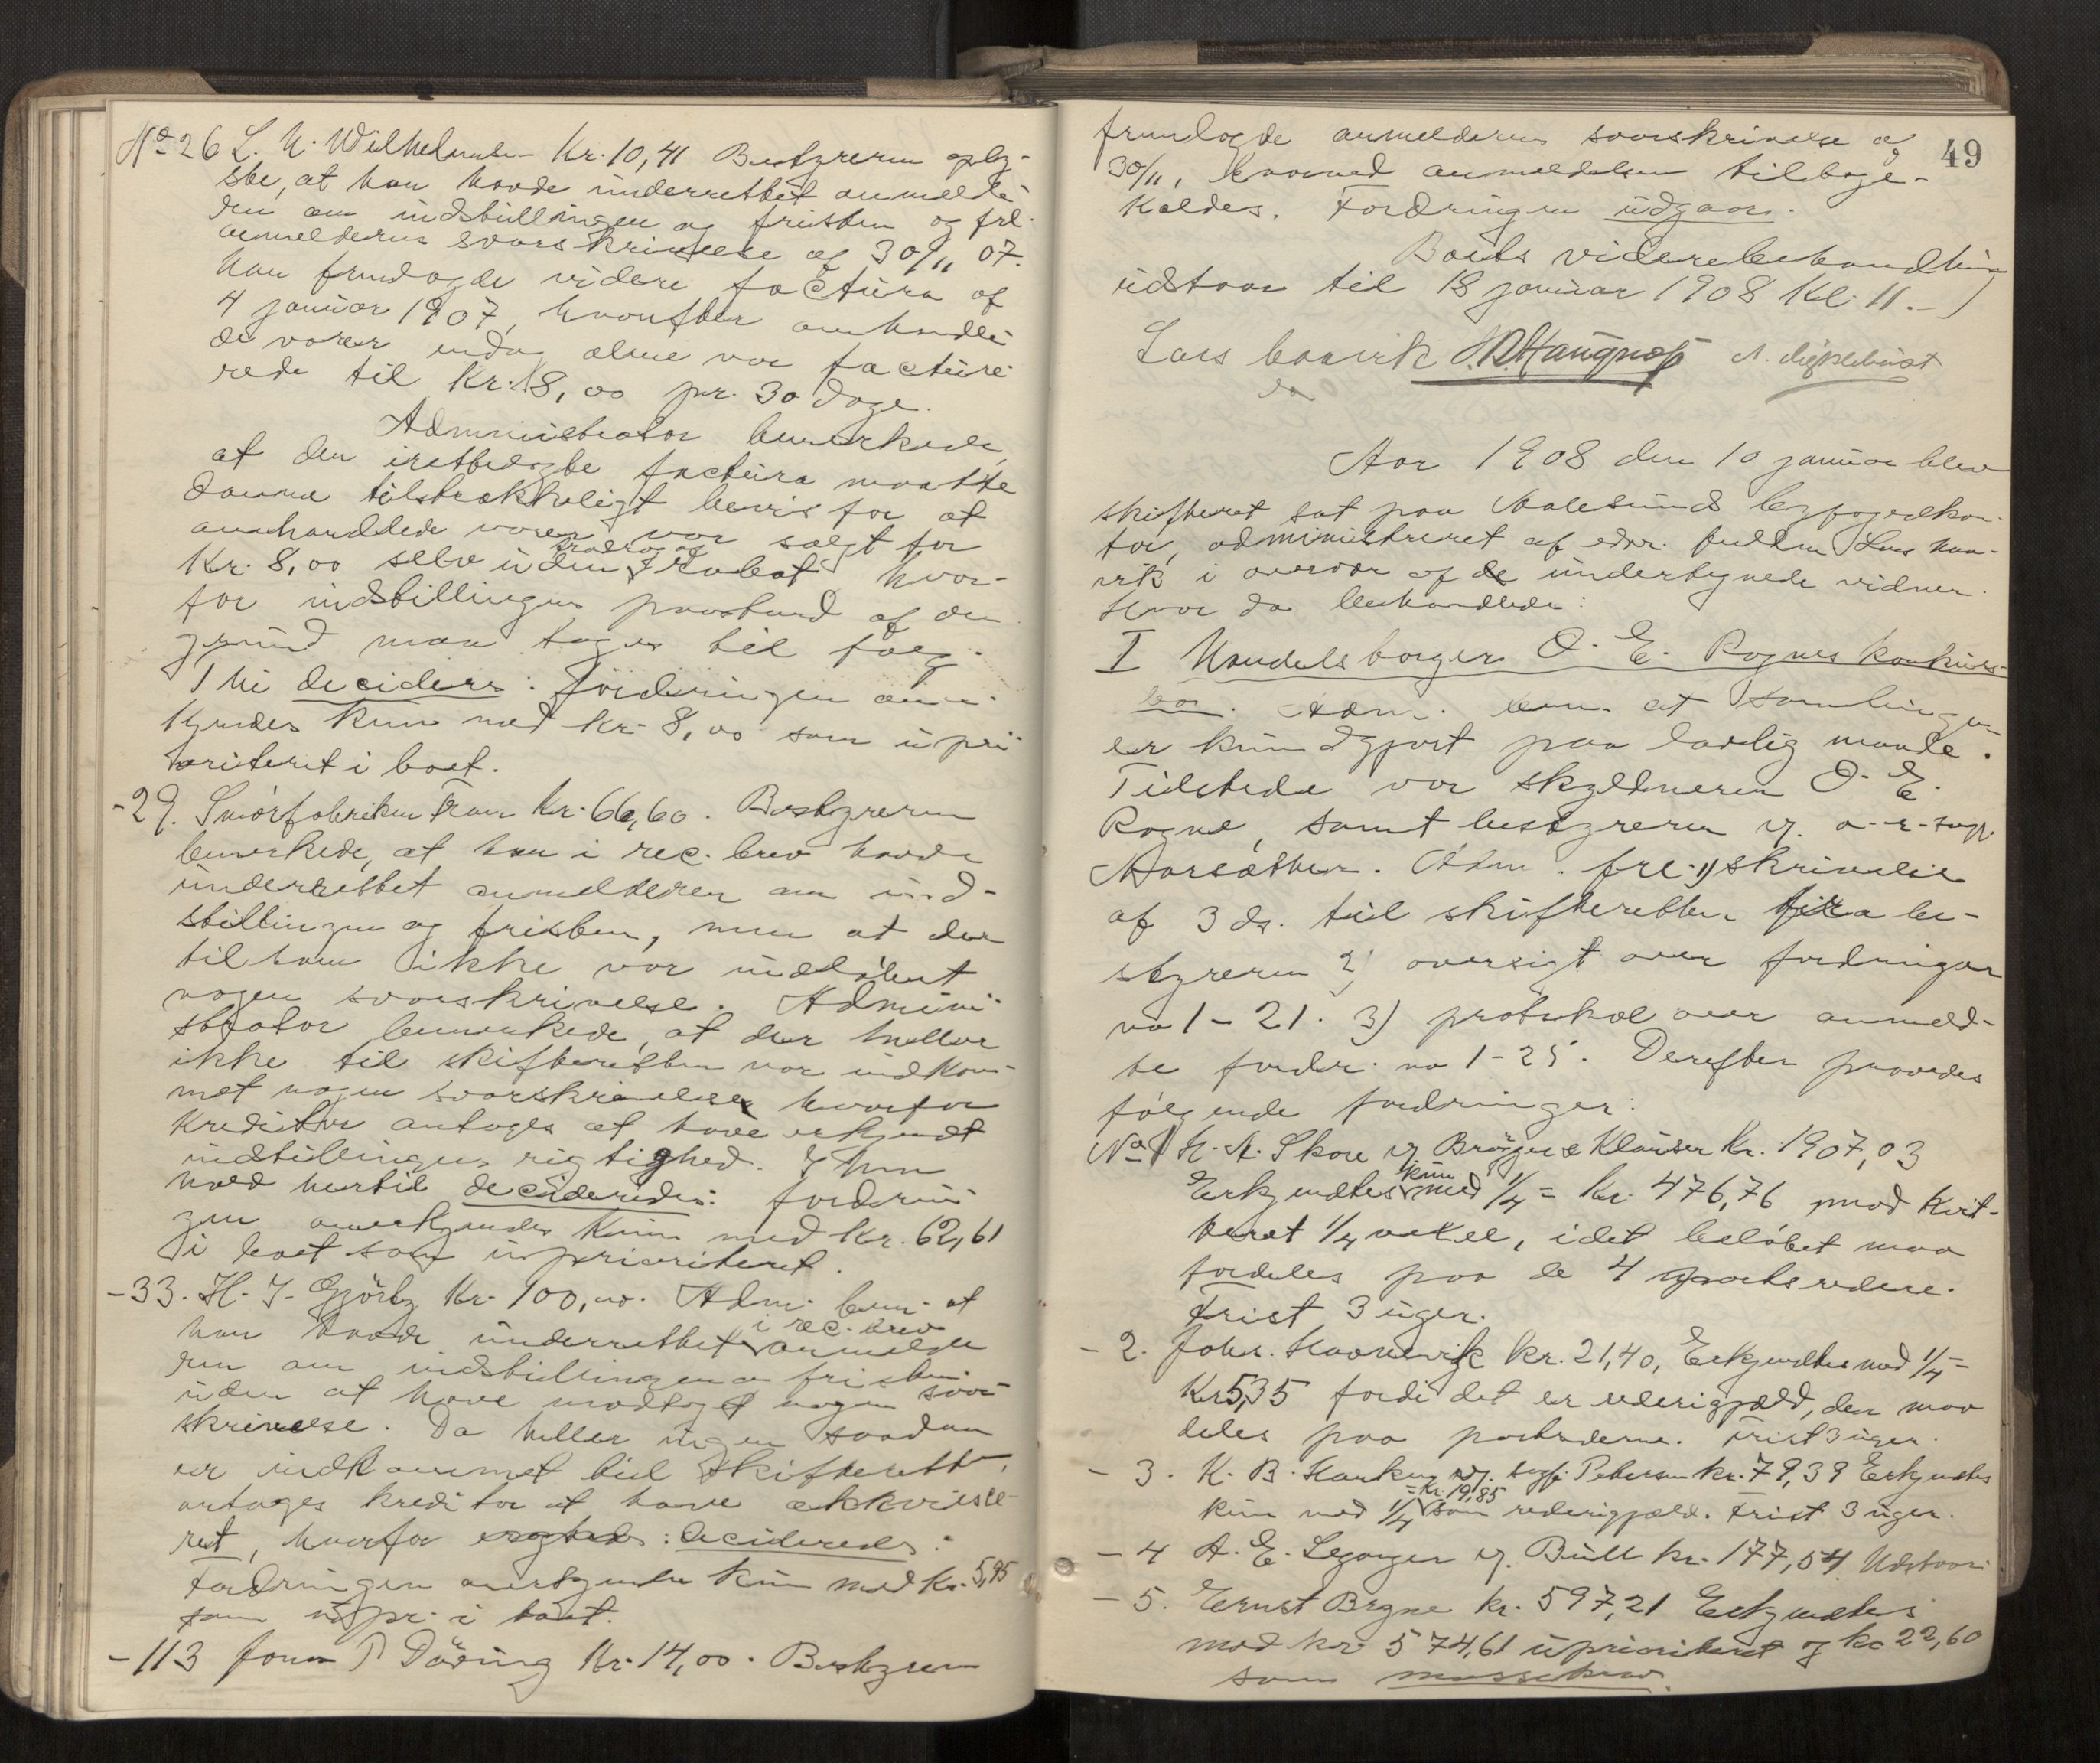 No 26 L. N. Wilhelmsen Kr. 10,41 Bestyreren oply-
ste, at han havde underrettet anmelde-
ren om indstillingen og fristen og frl.
anmelderens svarskrivelse af 30/11 07.
han fremlagde videre factura af
4 januar 1907, hvorefter omhandle-
de varer endog alene var facture-
rede til Kr. 8,00 pr. 30 dage.
Administrator bemerkede,
at den iretledgte factura maatte
danne tilstrækkeligt bevis for at
omhandlede varer var solgt for
Kr. 8,00 selv uden fradrag af rabat hvor-
for indstillingens paastand af den
grund maa tages til følge.
Thi decideres: fordringen aner-
kjendes kun med kr. 8,00 som upri-
oriteret i boet.
- 29. Smørfabriken Fram Kr. 66,60. Bestyreren
bemerkede, at han i rec. brev havde
underrettet anmelderen om ind-
stillingen og fristen, men at der
til ham ikke var indløbet
nogen svarskrivelse. Admini-
strator bemerkede, at der heller
ikke til skifteretten var indkom-
met nogen svarskrivelse hvorfor
kreditor antages at have erkjendt
indstillingens rigtighed. I hen-
hold hertil decideredes: fordrin-
gen anerkjendes kun med Kr. 62,61
i boet som uprioriteret.
- 33. H. J. Kr. 100,00. Adm. bem. at
han havde underrettet i rec. brev anmelde-
ren om indstillingen og fristen
uden at have modtaget nogen svar-
skrivelse. Da heller ingen saadan
er indkommet til skifteretten,
antages kreditor at have akkviesce-
ret, hvorfor : decideredes:
Fordringen anerkjendes kun med Kr. 5,95
som upr. i boet.
- 113 Döring Kr. 14,00. Bestyreren
49
fremlagde anmelderens svarskrivelse af
30/11, hvorved anmeldelsen tilbage-
kaldes. Fordringen udgaar.
Boets viderebehandling
udstaar til 18 januar 1908 Kl. 11.-
Lars
Aar 1908 den 10 januar blev
skifteret sat paa Aalesunds byfogedkon-
tor, administreret af edsv. fuldm. Lars
i overvær af de undertegnede vidner.
Hvor da behandledes:
I Handelsborger O. E. Rognes konkurs-
bo. Adm. bem. at samlingen
er kundgjort paa lovlig maade.
Tilstede var skyldneren O. E.
Rogne, samt bestyreren v. o-r-sagf.
Aarsæther. Adm. frl. 1) skrivelse
af 3 ds. til skifteretten fra be-
styreren 2) oversigt over fordringer
no 1-21. 3) protokol over anmeld-
te fordr. no 1-25. Derefter prøvedes
følgende fordringer:
No 1 M. A. Skare v. Brögger & Klauser Kr. 1907,03
Erkjendtes kun med 1/4 = Kr. 476,76 mod kvit-
teret 1/4 vexel, idet beløbet maa
fordeles paa de 4 partsredere.
Frist 3 uger.
- 2. Johs. Kr. 21,40, Erkjendtes med 1/4 =
Kr 5,35 fordi det er rederigjæld, der maa
deles paa partrederne. Frist 3 uger.
- 3. K. B. v. sagf. Petersen Kr. 79,39 Erkjendtes
kun med 1/4 = Kr. 19,85 som rederigjæld. Frist 3 uger.
- 4 A. E. v. Bull Kr. 177,54 Udstaar.
- 5. Ernst Brgne kr. 597,21 Erkjendtes
med kr. 574,61 uprioriteret og kr 22,60
som massekrav.